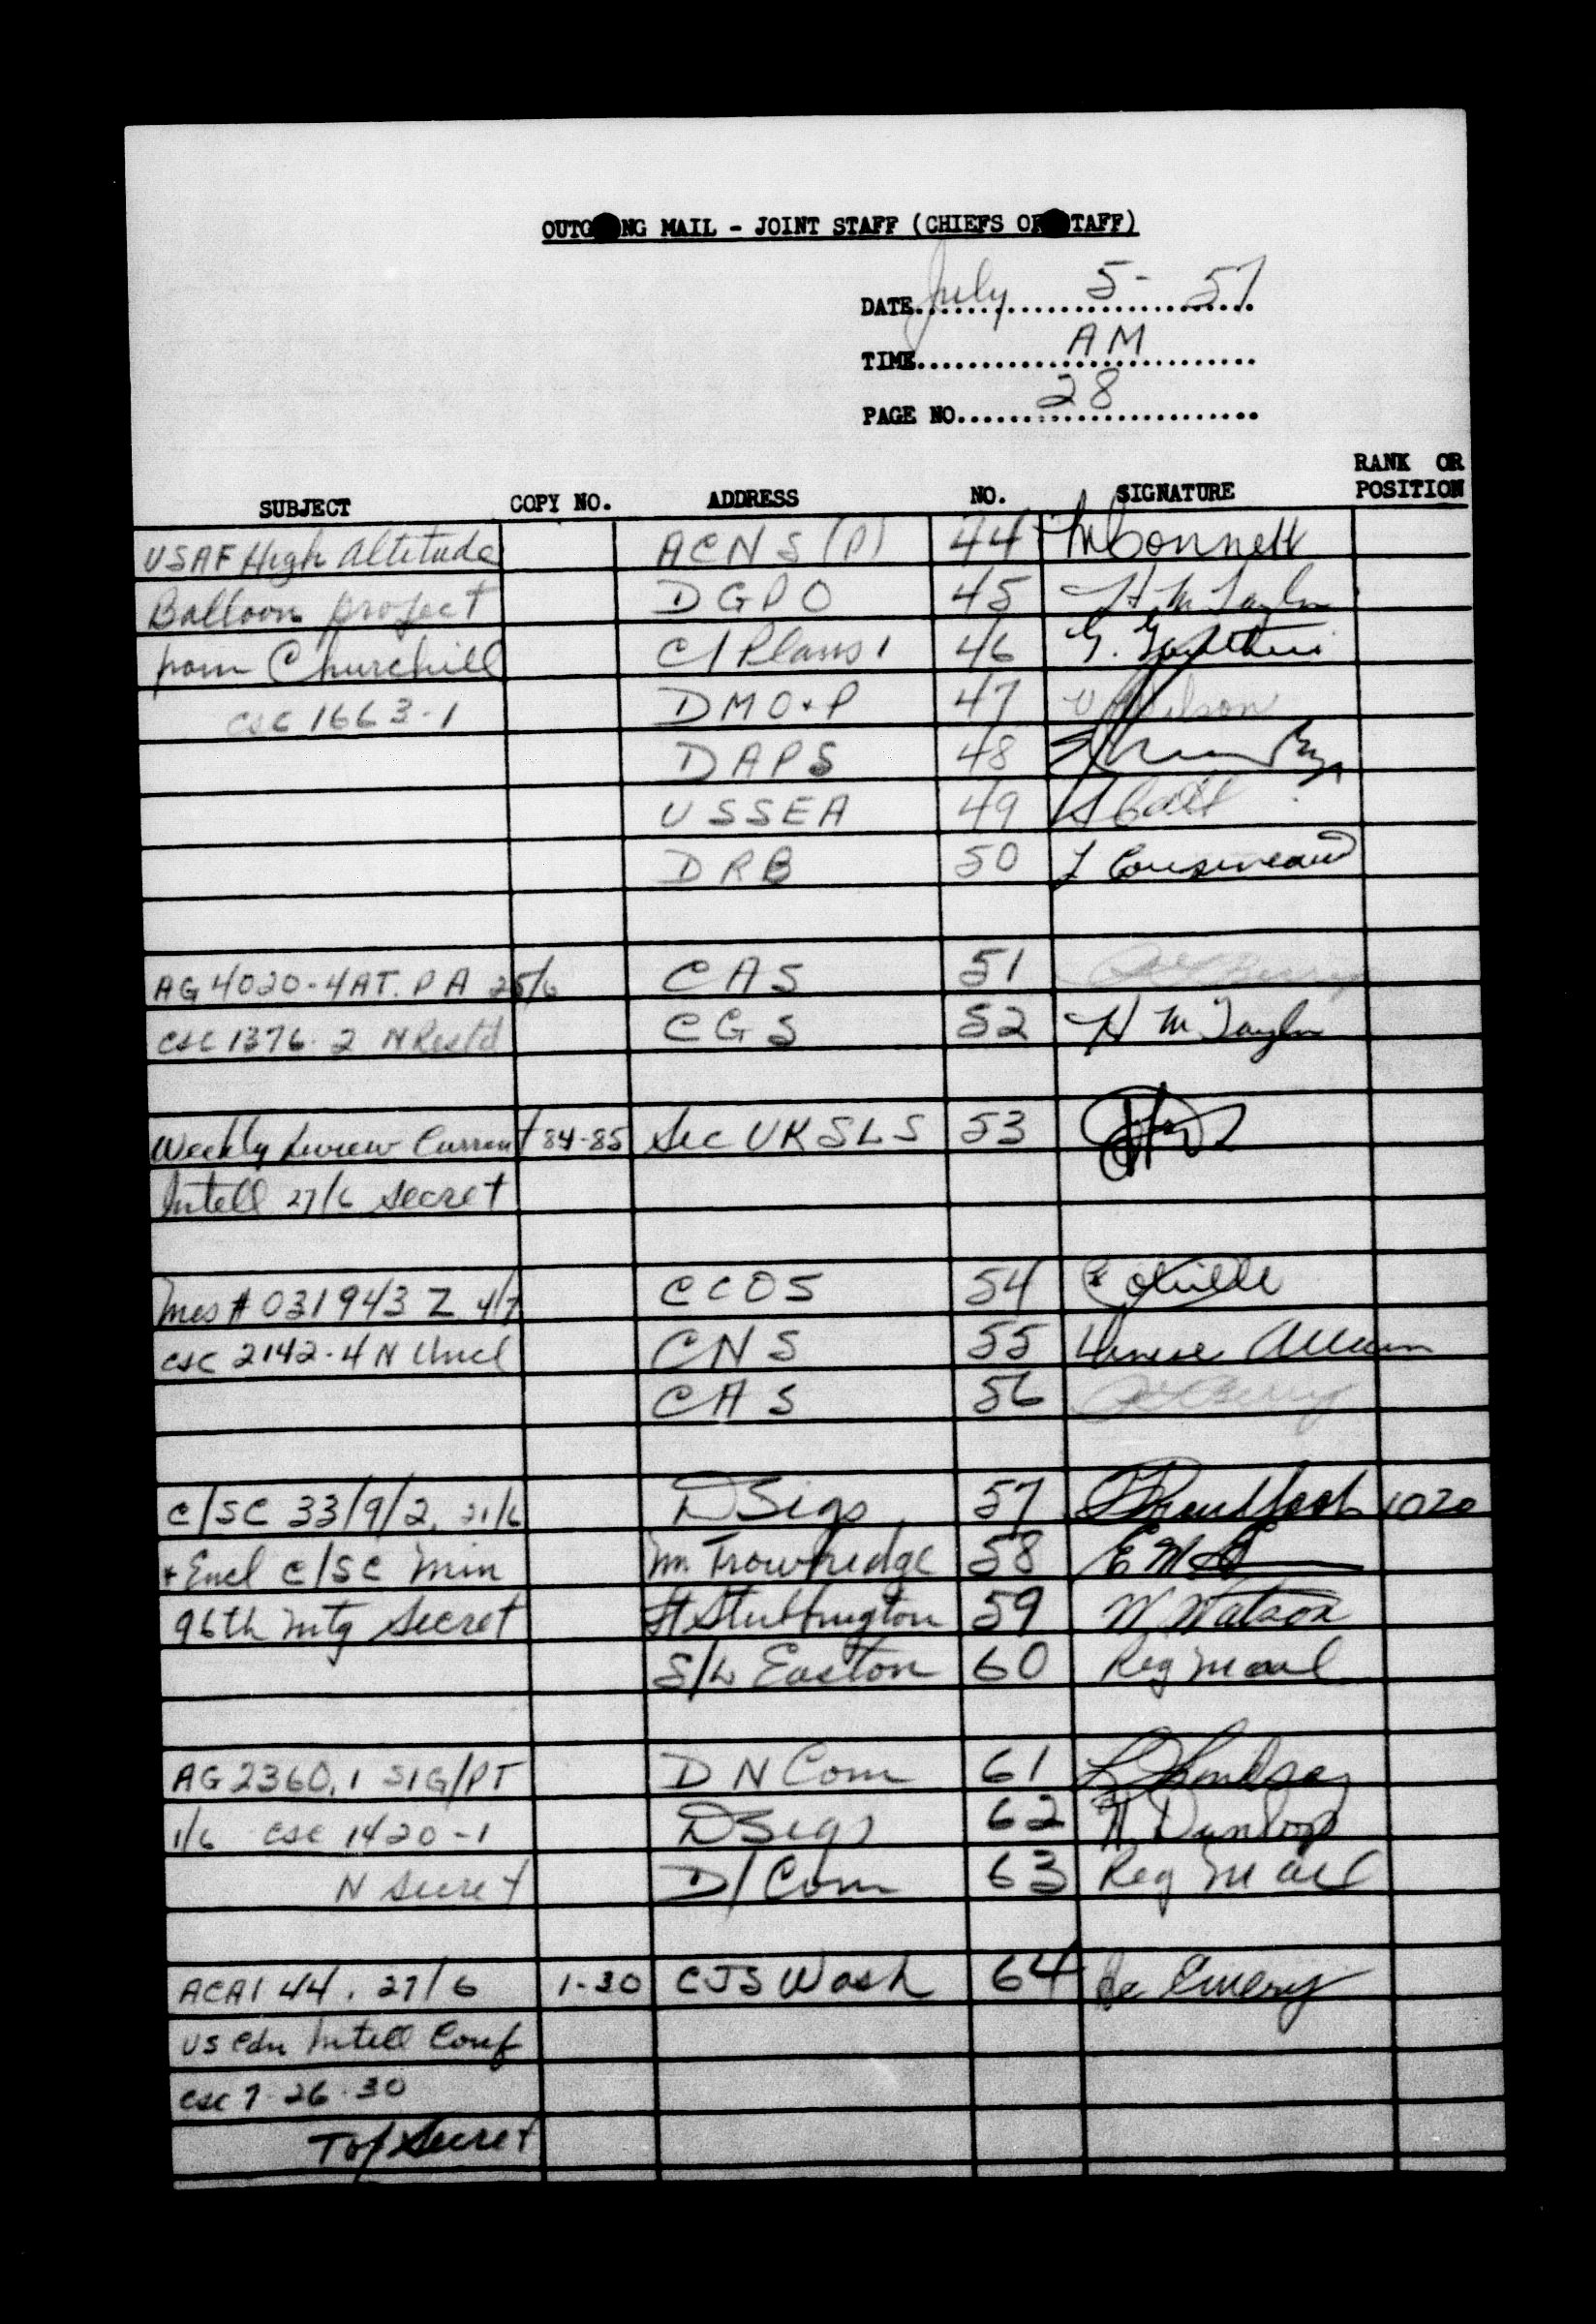 OUTGOING MAIL - JOINT STAFF (CHIEFS OF STAFF)
DATE July 5 - 57
TIME AM
PAGE NO. 28
SUBJECT COPY NO. ADDRESS NO. SIGNATURE RANK OR POSITION
USAF High Altitude ACNS (P) 44 McConnell
Balloon project DGPO 45 H M Taylor
from Churchill C/Plans 1 46 G.
CSC 1663-1 DMO+P 47 Wilson
DAPS 48
USSEA 49
DRB 50 L Cousineau
AG 4020-4AT. PA 25/6 CAS 51 Berry
CSC 1376-2 N Rest'd CGS 52 H M Taylor
Weekly Review Current 84-85 Sec UKSLS 53
Intell 27/6 Secret
Mes # 031943 Z 4/7 CCOS 54
CSC 2142-4 N Uncl CNS 55
CAS 56 Berry
C/SC 33/9/2, 21/6 DSigs 57 1020
+ Encl C/SC Min Mr. Trowbridge 58
96th Mtg Secret Stubbington 59 W. Watson
S/L Easton 60 Reg Mail
AG 2360.1 SIG/PT DNCom 61 Lindsay
1/6 CSC 1420-1 DSigs 62 Dunlop
N Secret D/Com 63 Reg Mail
ACAI 44. 27/6 1-30 CJS Wash 64 Emery
US Cdn Intell Conf
CSC 7-26-30
Top Secret